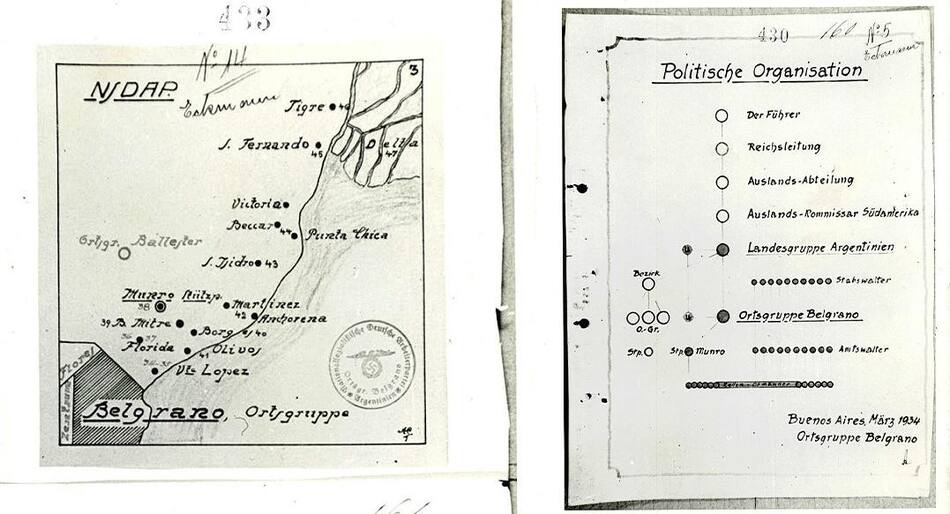 433
Nº 14
3
NSDAP.
Eckmann
Tigre 46
S. Fernando
45
Delta
47
Victoria
Beccar
44
Punta Chica
Ortsgr. Ballester
S. Isidro 43
Munro Stützp.
38
Martinez
42
Anchorena
39 B. Mitre
Borges 40
Florida
41 Olivos
Vte Lopez
Zentrum
Flores
Belgrano, Ortsgruppe
Nationalsozialistische Deutsche Arbeiterpartei
Ortsgr. Belgrano
Argentinien
430
160
Nº 5
Eckmann
Politische Organisation
Der Führer
Reichsleitung
Auslands-Abteilung
Auslands-Kommissar Südamerika
Landesgruppe Argentinien
Bezirk
Stabswalter
Ortsgruppe Belgrano
O.-Gr.
Stp.
Stp. Munro
Amtswalter
Buenos Aires, März 1934
Ortsgruppe Belgrano